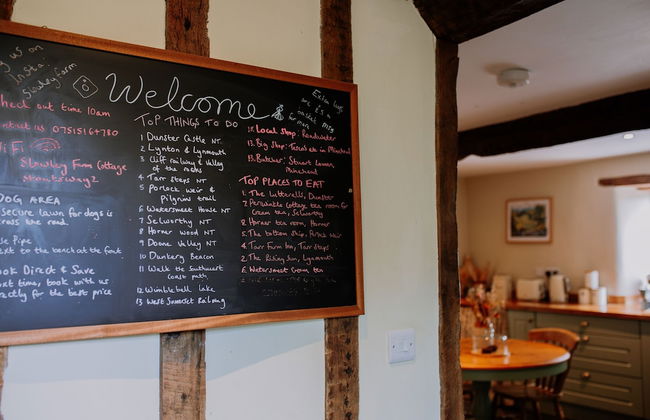 g us on
Insta:
Slowley Farm
Welcome
Extra logs
are £5 a
basket
for more
check out time 10am
Contact us 07515167780
WiFi
Slowley Farm Cottage
DOG AREA
Secure lawn for dogs is
cross the road.
Pipe
ext to the bench at the font
ook Direct & Save
ext time, book with us
rectly for the best price
TOP THINGS TO DO
1 Dunster Castle NT
2 Lynton & Lynmouth
3 Cliff railway & Valley
of the rocks
4 Tarr Steps NT
5 Porlock Weir &
Pilgrims trail
6 Watersmeet House NT
7 Selworthy NT
8 Horner Wood NT
9 Doone Valley NT
10 Dunkery Beacon
11 Walk the Southwest
Coast path
12 Wimbleball Lake
13 West Somerset Railway
Local Shop: Roadwater
Big shop: Tesco etc in Minehead
Butcher: Stuart
Minehead
TOP PLACES TO EAT
1. The Luttrells, Dunster
2 Periwinkle Cottage tea room for
Cream tea, Selworthy
Horner tea room, Horner
The bottom ship, Porlock Weir
Tarr Farm Inn, Tarr Steps
The Rising Sun, Lynmouth
Watersmeet Cream tea